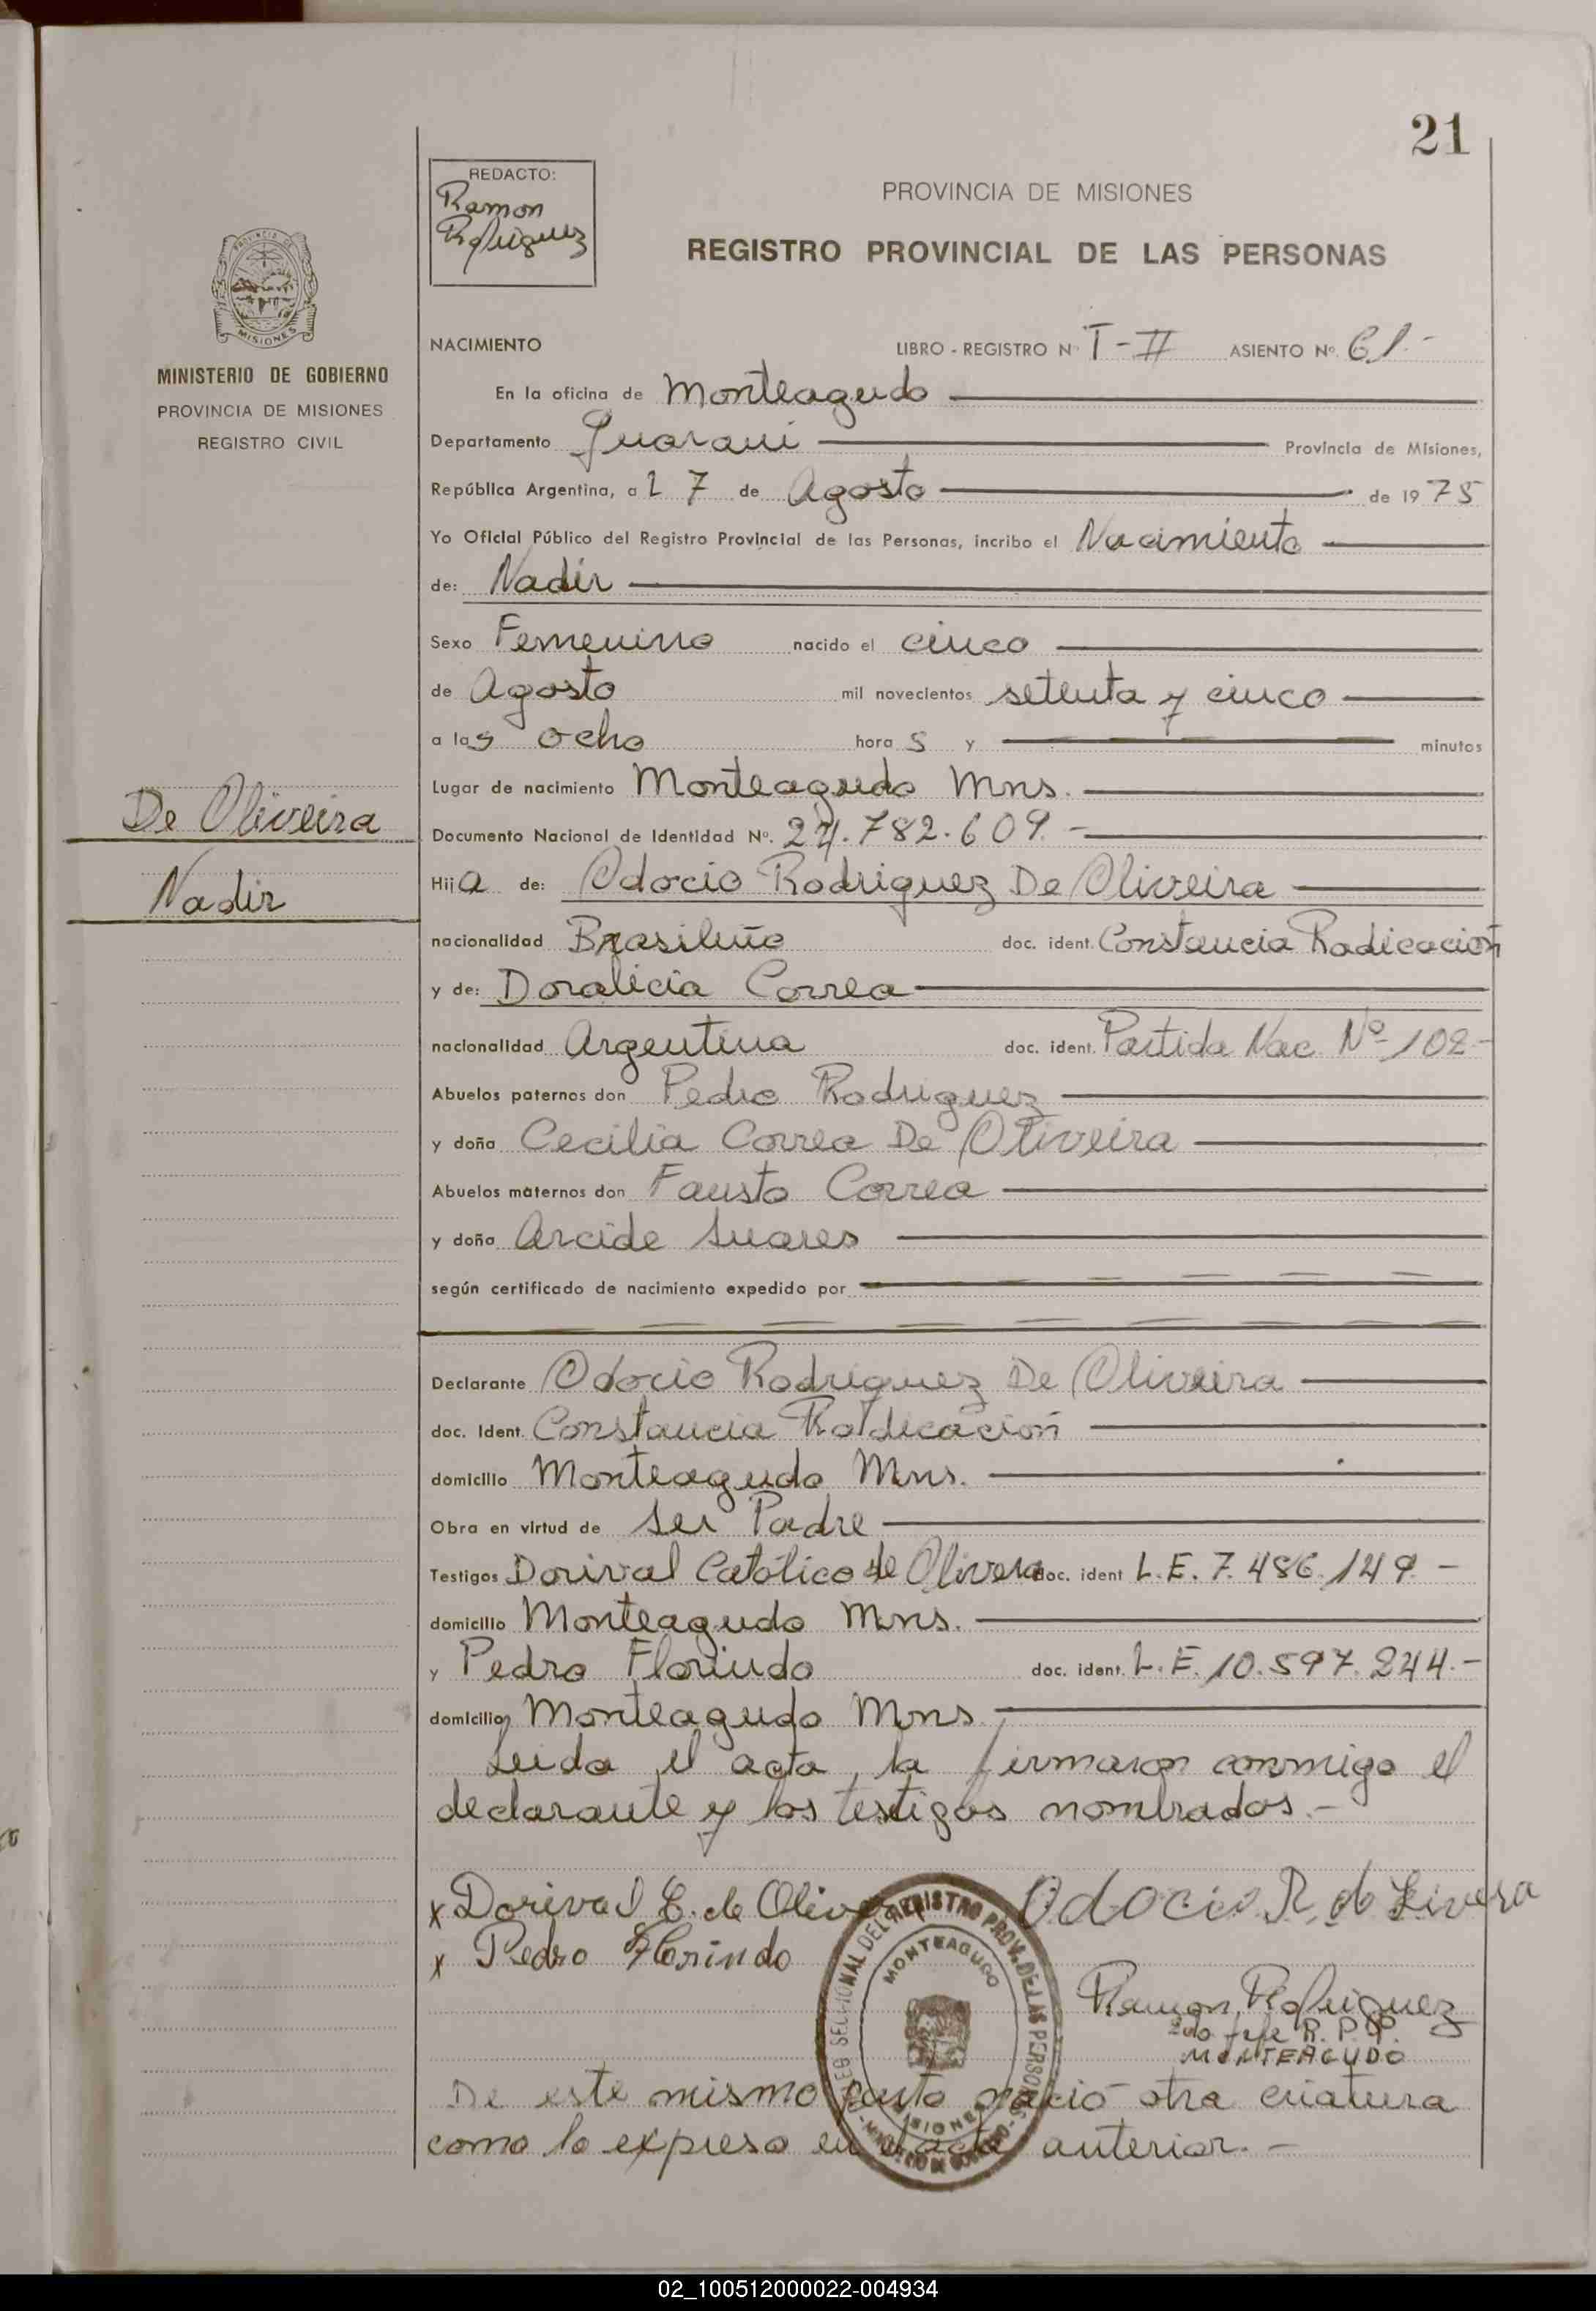 21
REDACTO:
Ramon
Rodriguez
PROVINCIA DE MISIONES
REGISTRO PROVINCIAL DE LAS PERSONAS
MISIONES
MINISTERIO DE GOBIERNO
PROVINCIA DE MISIONES
REGISTRO CIVIL
De Oliveira
Nadir
NACIMIENTO LIBRO - REGISTRO Nº T-II ASIENTO Nº. 61.-
En la oficina de Monteagudo
Departamento Guarani Provincia de Misiones,
República Argentina, a 27 de Agosto de 1975
Yo Oficial Público del Registro Provincial de las Personas, incribo el Nacimiento
de: Nadir
Sexo Femenino nacido el cinco
de Agosto mil novecientos setenta y cinco
a las ocho horas y minutos
Lugar de nacimiento Monteagudo Mns.
Documento Nacional de Identidad Nº. 24.782.609.-
Hija de: Odocio Rodriguez De Oliveira
nacionalidad Brasileña doc. ident. Constancia Radicación
y de: Doralicia Correa
nacionalidad Argentina doc. ident. Partida Nac. Nº 102-
Abuelos paternos don Pedro Rodriguez
y doña Cecilia Correa De Oliveira
Abuelos maternos don Fausto Correa
y doña Arcide Suares
según certificado de nacimiento expedido por
Declarante Odocio Rodriguez De Oliveira
doc. Ident. Constancia Radicación
domicilio Monteagudo Mns.
Obra en virtud de ser Padre
Testigos Dorival Católico de Olivera doc. ident L.E. 7.486.149.-
domicilio Monteagudo Mns.
y Pedro Florindo doc. ident. L.E. 10.597.244.-
domicilio Monteagudo Mns.
Leida el acta, la firmaron conmigo el
declarante y los testigos nombrados.-
x Dorival C. de Olivera Odocio R. de Livera
x Pedro Florindo
Ramon Rodriguez
Jefe R.P.P.
MONTEAGUDO
DEL REGISTRO PROV. DE LAS PERSONAS
MONTEAGUDO
MISIONES
De este mismo parto nació otra criatura
como lo expreso en el acta anterior.-
02_100512000022-004934